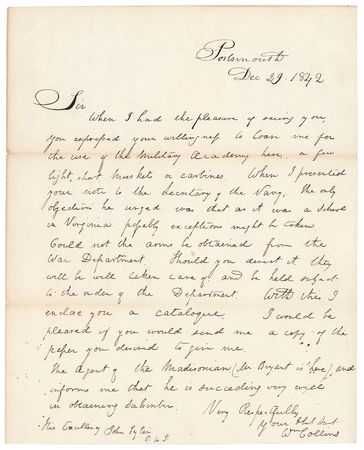 Portsmouth
Dec 29. 1842
Sir
When I had the pleasure of seeing you,
you expressed your willingness to loan me for
the use of the Military Academy here, a few
light, short muskets or carbines. When I presented
your note to the Secretary of the Navy. The only
objection he urged, was that as it was a school
in Virginia possibly exceptions might be taken.
Could not the arms be obtained from the
War Department. Should you direct it they
will be well taken care of and be held subject
to the order of the Department. With this I
enclose you a catalogue. I would be
pleased if you would send me a copy of the
paper you desired to give me.
The Agent of the Madisonian (Mr Bryant is here) and
informs me that he is succeeding very well
in obtaining subscribers.
Very Respectfully
Your Obt Servt
Wm Collins
His Excellency John Tyler
P. U S.